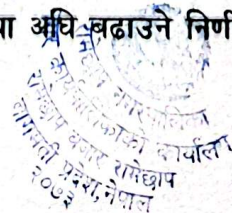 अघि बढाउने निर्ण
रामेछाप नगरपालिका
कार्यपालिकाको कार्यालय
रामेछाप बजार रामेछाप
बागमती प्रदेश, नेपाल
२०७३